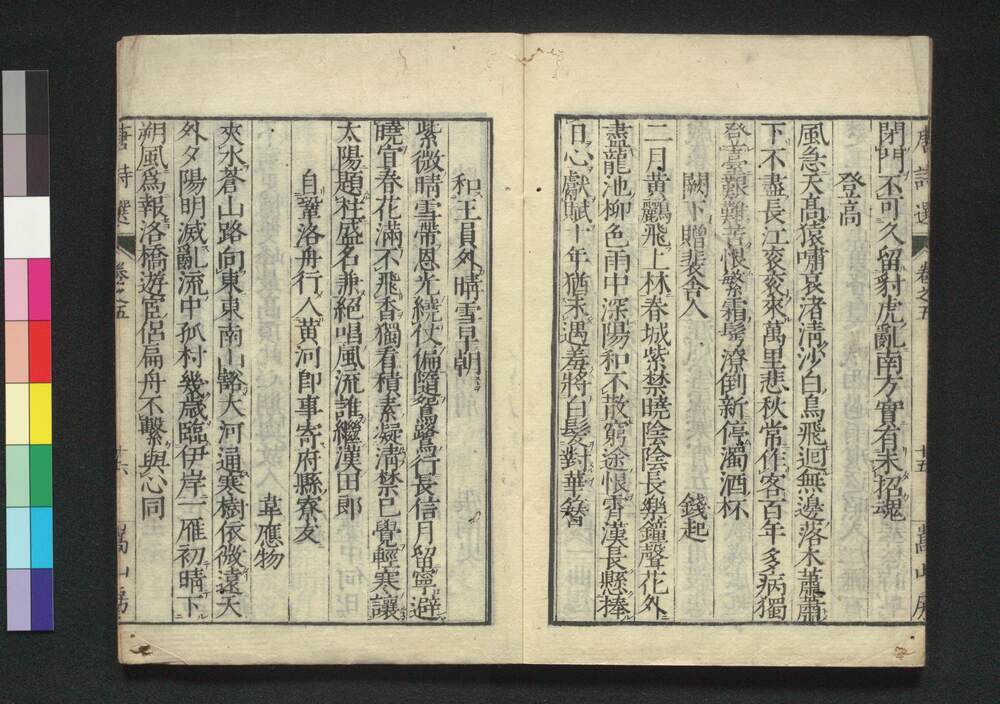 唐詩選 卷之五 十五 嵩山房
閉門不可久留豺虎亂南方實有未招魂
登高
風急天高猿嘯哀渚清沙白鳥飛迴無邊落木蕭蕭
下不盡長江衮衮來萬里悲秋常作客百年多病獨
登臺艱難苦恨繁霜鬓潦倒新停濁酒杯
闕下贈裴舍人 錢起
二月黄鸝飛上林春城紫禁曉陰陰長樂鐘聲花外
盡龍池柳色雨中深陽和不散窮途恨霄漢長懸捧
日心獻賦十年猶未遇羞將白髮對華簪
和王員外晴雪早朝
紫微晴雪帶恩光繞仗偏隨鴛鷺行長信月留寧避
曉宜春花滿不飛香獨看積素凝清禁已覺輕寒讓
太陽題柱盛名兼絕唱風流誰繼漢田郎
自鞏洛舟行入黄河即事寄府縣寮友
韋應物
夾水蒼山路向東東南山豁大河通寒樹依微遠天
外夕陽明滅亂流中孤村幾歲臨伊岸一雁初晴下
朔風爲報洛橋遊宦侶扁舟不繫與心同
唐詩選 卷之五 十六 嵩山房